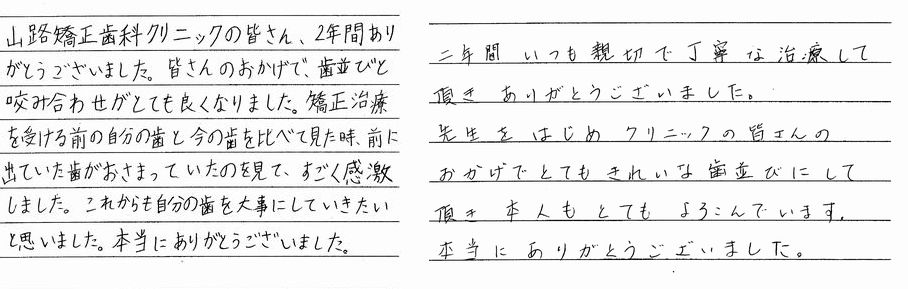 山路矯正歯科クリニックの皆さん、2年間あり
がとうございました。皆さんのおかげで、歯並びと
咬み合わせがとても良くなりました。矯正治療
を受ける前の自分の歯と今の歯を比べて見た時、前に
出ていた歯がおさまっていたのを見て、すごく感激
しました。これからも自分の歯を大事にしていきたい
と思いました。本当にありがとうございました。
二年間 いつも親切で丁寧な治療して
頂き ありがとうございました。
先生をはじめ クリニックの皆さんの
おかげでとてもきれいな歯並びにして
頂き 本人もとてもよろこんでいます。
本当に ありがとうございました。